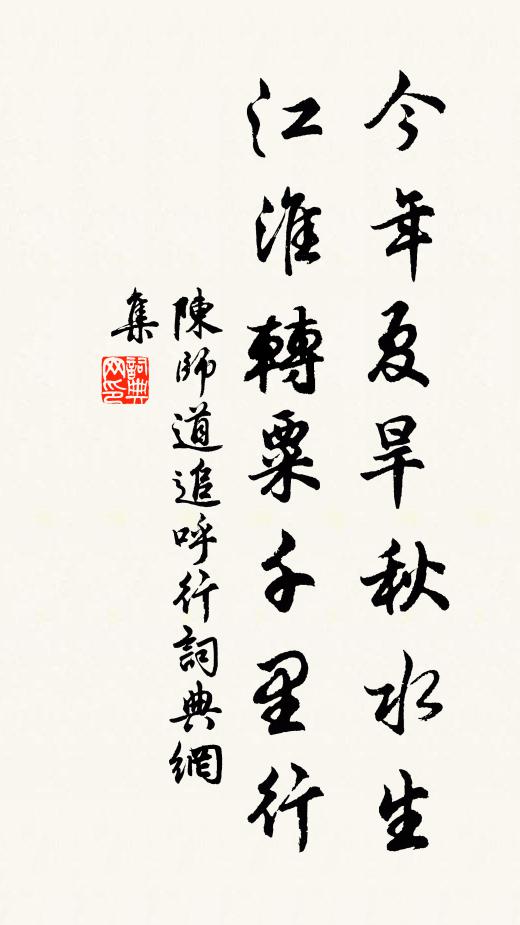 今年夏旱秋水生
江淮轉粟千里行
陳師道追呼行詞典網
集
詞典
网印